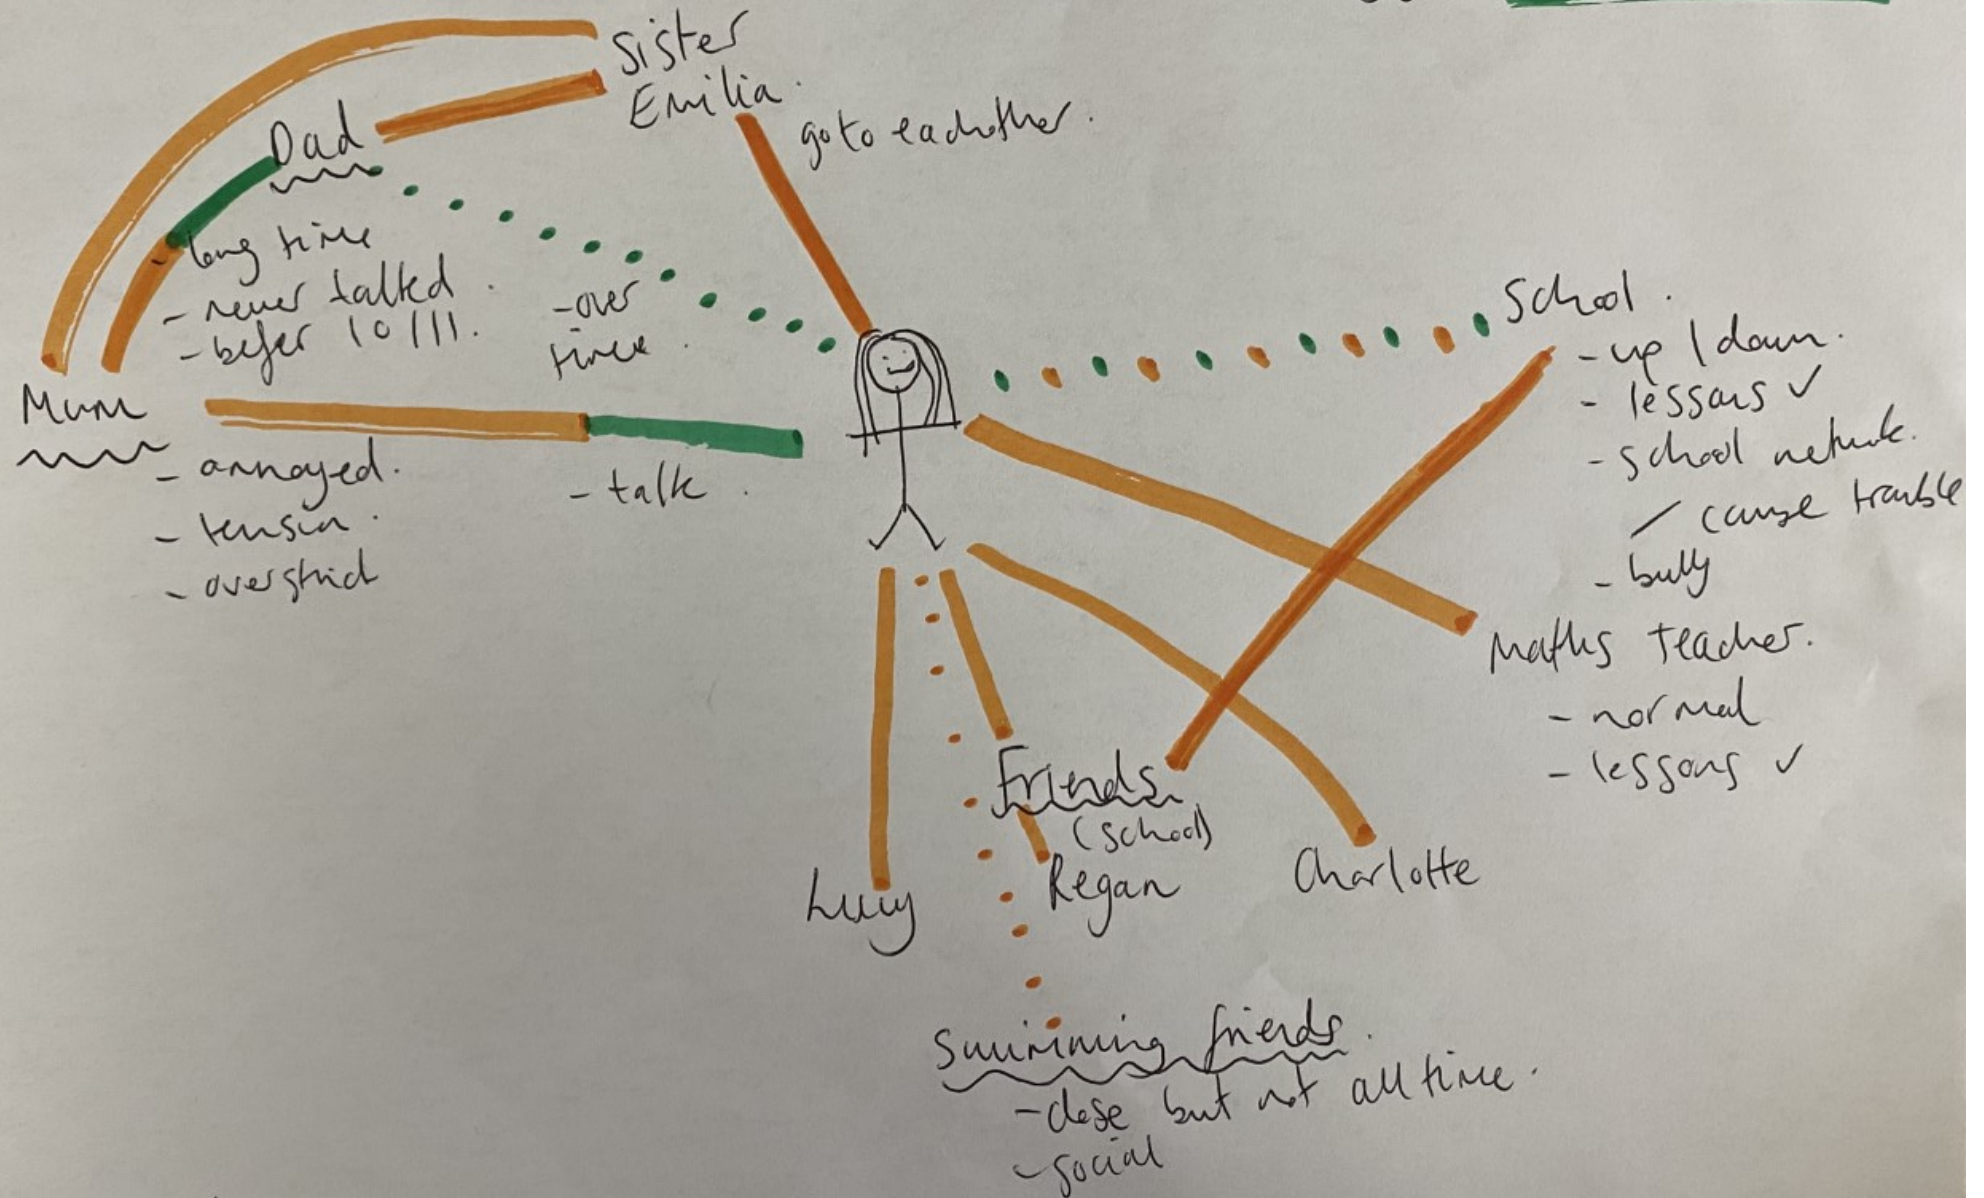 Sister
Emilia.
go to eachother.
Dad
- long time
- never talked.
- befer 10/11.
- over
time.
Mum
- annoyed.
- tension.
- overstrict
- talk.
School.
- up / down.
- lessons ✓
- school network.
/ cause trouble
- bully
Maths teacher.
- normal
- lessons ✓
Friends.
(school)
Lucy
Regan
Charlotte
Swimming friends.
- close but not all time.
- social